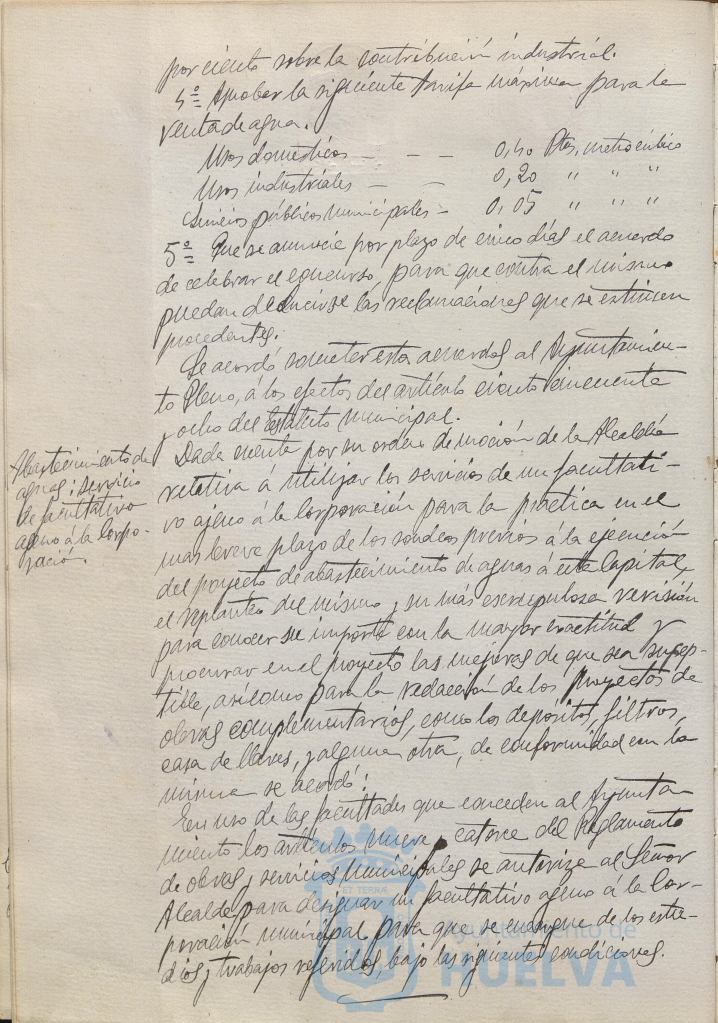 por ciento sobre la contribución industrial.
4º= Aprobar la siguiente tarifa máxima para la
venta de agua.
Usos domésticos - - - 0,40 Ptas, metro cúbico
Usos industriales - - 0,20 " " "
Servicios públicos municipales - 0,05 " " "
5º= Que se anuncie por plazo de cinco días el acuerdo
de celebrar el concurso, para que contra el mismo
puedan deducirse las reclamaciones que se estimen
procedentes.
Se acordó someter estos acuerdos al Ayuntamien-
to Pleno, á los efectos del artículo ciento cincuenta
y ocho del Estatuto Municipal.
Abastecimiento de
aguas: servicio
de facultativo
ageno á la Corpo-
ración.
Dada cuenta por su orden de moción de la Alcaldía
relativa á utilizar los servicios de un facultati-
vo ajeno á la Corporación para la práctica en el
mas breve plazo de los sondeos previos á la ejecución
del proyecto de abastecimiento de aguas á esta Capital,
el replanteo del mismo y su más escrupulosa revisión
para conocer su importe con la mayor exactitud y
procurar en el proyecto las mejoras de que sea sucep-
tible, asi como para la redacción de los proyectos de
obras complementarios, como los depósitos, filtros,
casa de llaves, y alguna otra, de conformidad con la
misma se acordó:
En uso de las facultades que conceden al Ayunta-
miento los artículos nueve y catorce del Reglamento
de obras y servicios municipales se autorize al Señor
Alcalde para designar un facultativo ageno á la Cor-
poración municipal para que se encargue de los estu-
dios y trabajos referidos, bajo las siguientes condiciones.
ET TERRÆ
Ayuntamiento de
HUELVA